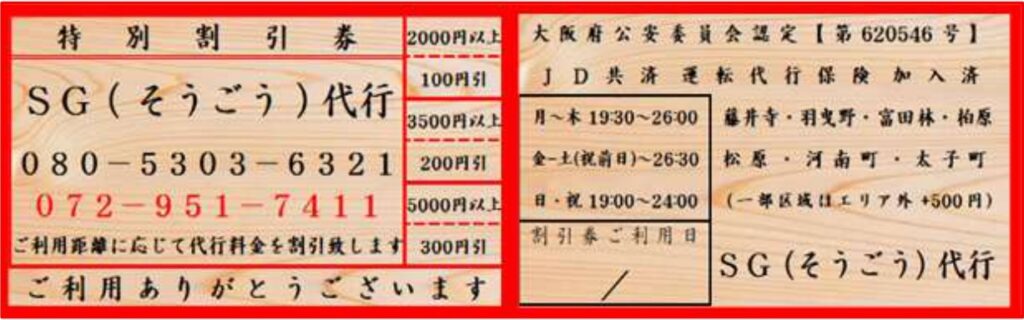 特別割引券
SG(そうごう)代行
080-5303-6321
072-951-7411
ご利用距離に応じて代行料金を割引致します
ご利用ありがとうございます
2000円以上
100円引
3500円以上
200円引
5000円以上
300円引
大阪府公安委員会認定【第620546号】
JD共済運転代行保険加入済
月~木 19:30~26:00
金-土(祝前日)~26:30
日・祝 19:00~24:00
割引券ご利用日
/
藤井寺・羽曳野・富田林・柏原
松原・河南町・太子町
(一部区域はエリア外+500円)
SG(そうごう)代行